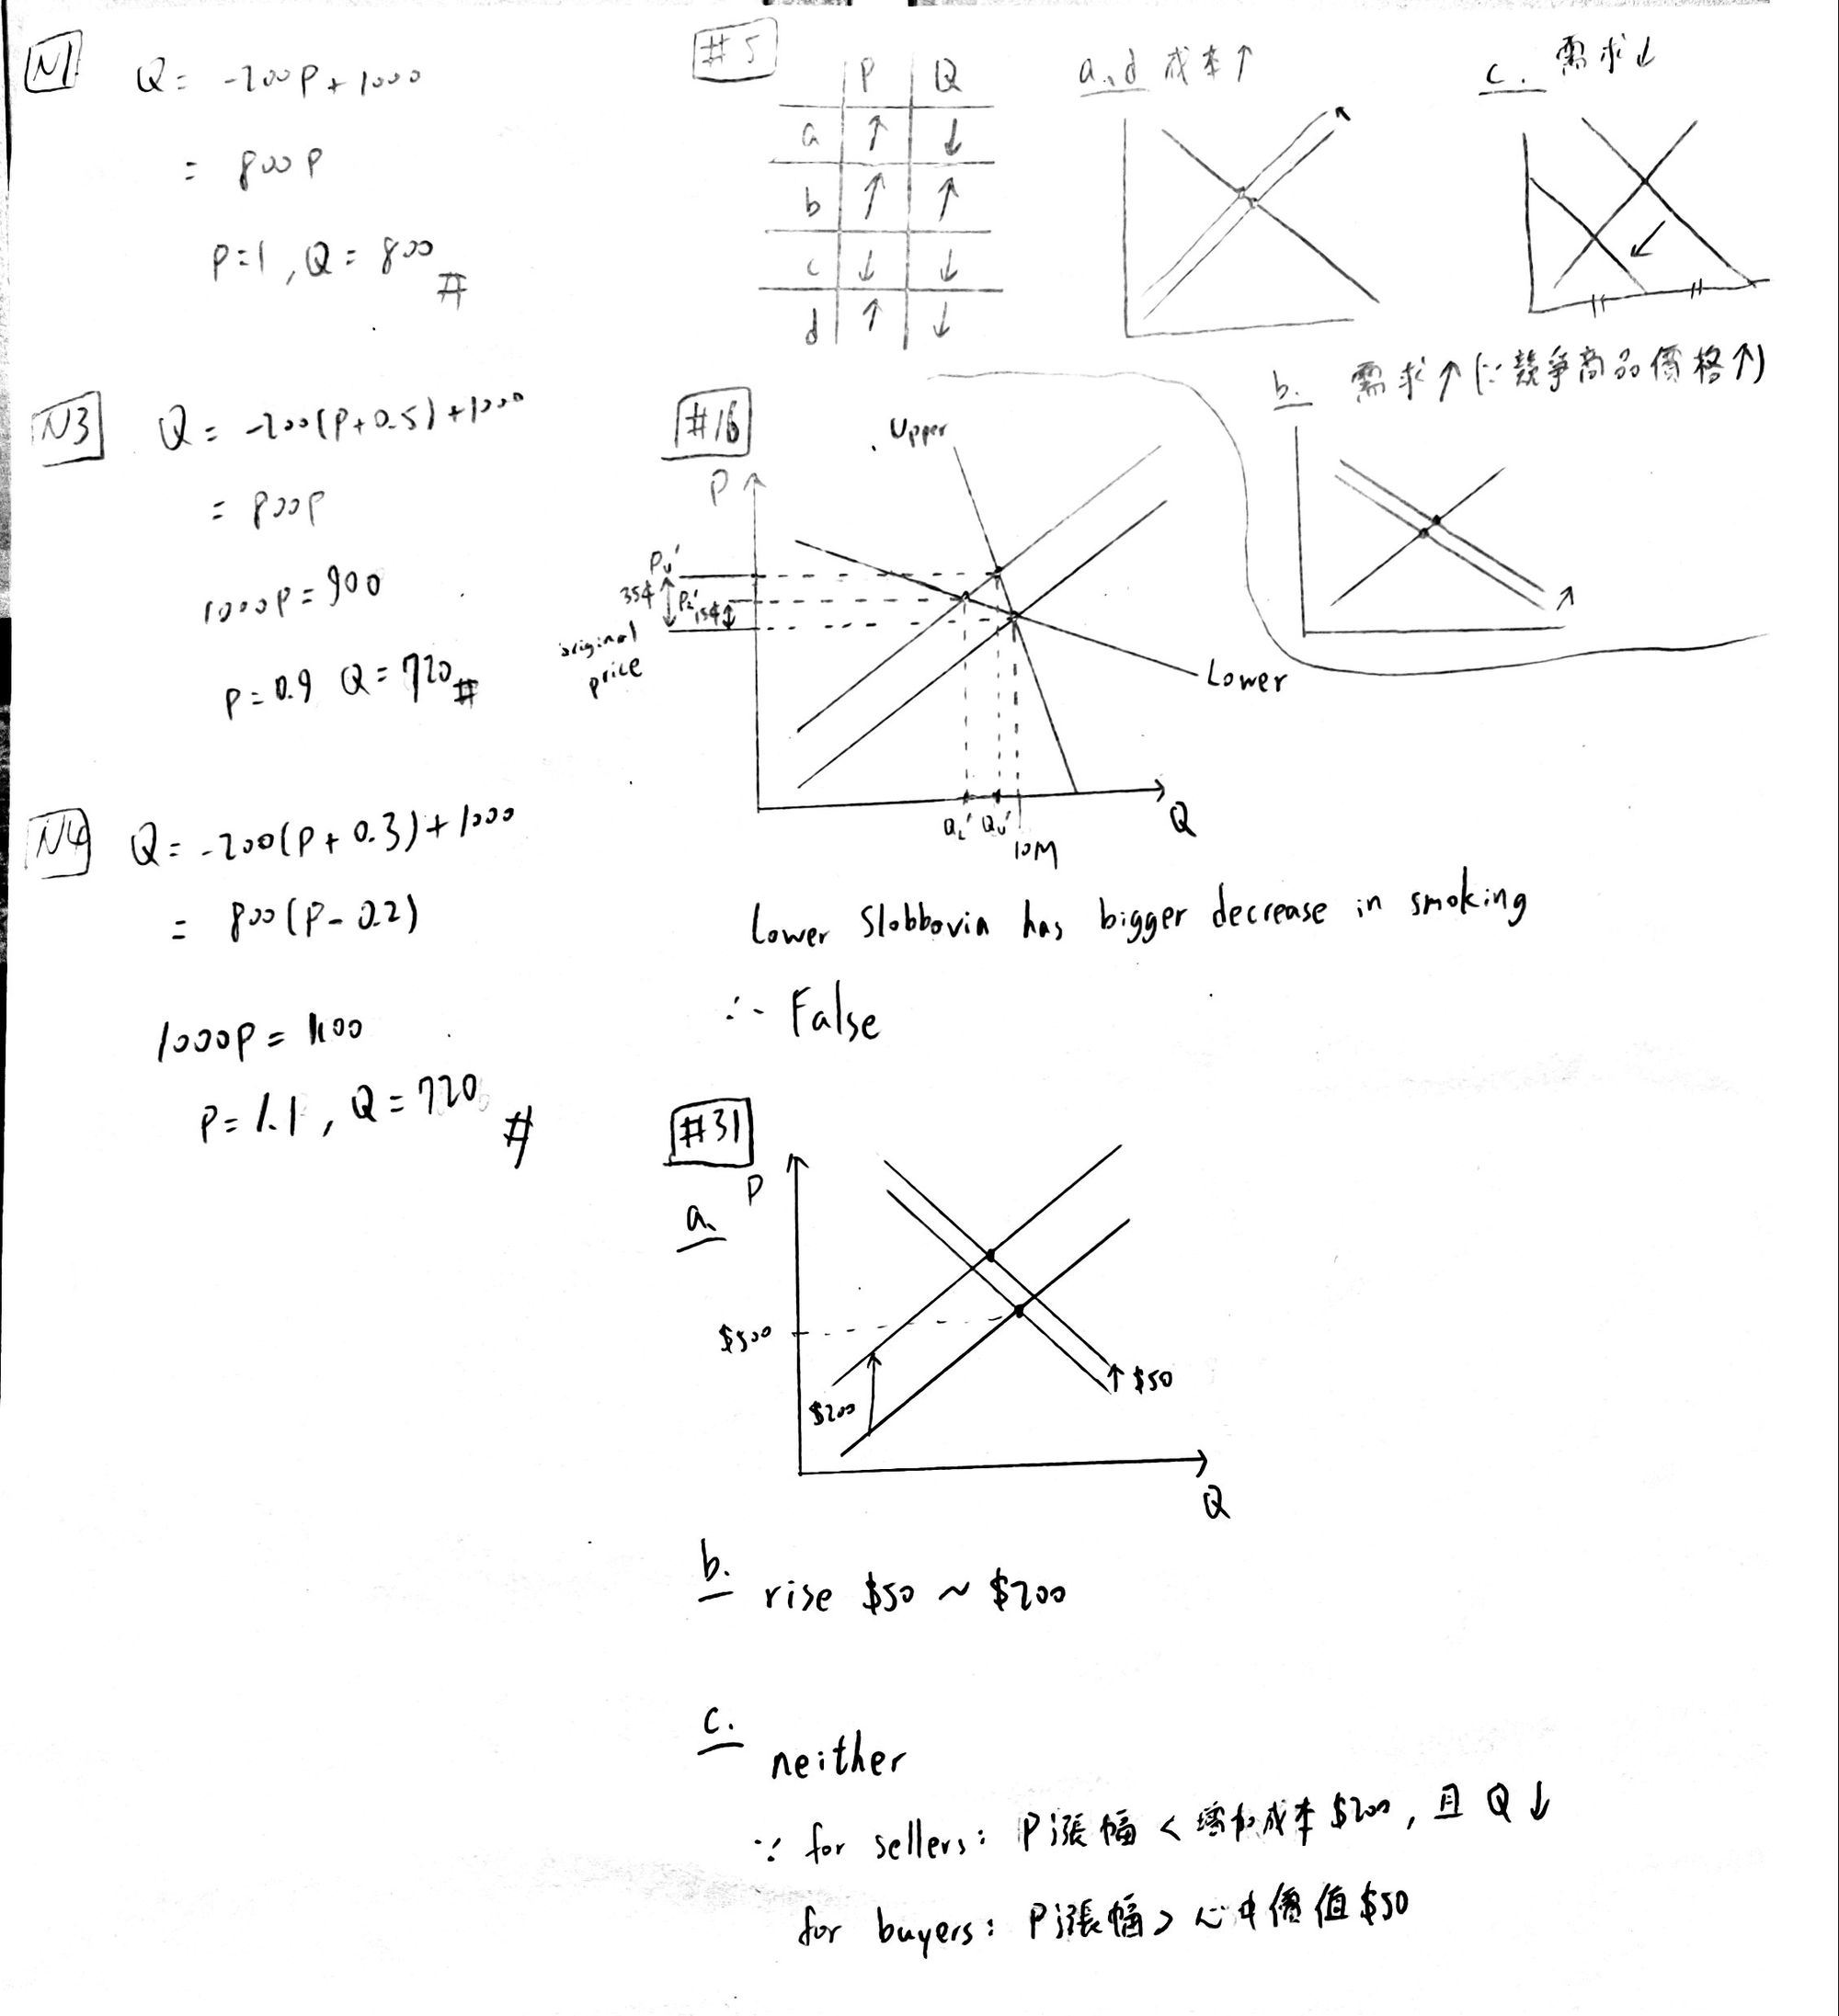 N1
Q = -200P + 1000
= 800P
P=1, Q = 800 #
N3
Q = -200(P+0.5)+1000
= 800P
1000P = 900
P = 0.9 Q = 720 #
N4
Q = -200(P+0.3)+1000
= 800(P-0.2)
1000P = 1100
P = 1.1, Q = 720 #
#5
P Q
a ↑ ↓
b ↑ ↑
c ↓ ↓
d ↑ ↓
a、d 成本↑
c. 需求↓
b. 需求↑(∵競爭商品價格↑)
#16
P
Upper
Pu'
35¢
PL'
15¢
original
price
Lower
QL' Qu'
10M
Q
Lower Slobbovia has bigger decrease in smoking
∴ False
#31
a.
P
$500
$200
↑ $50
Q
b. rise $50 ~ $200
c.
neither
∵ for sellers: P漲幅 < 增加成本 $200, 且 Q ↓
for buyers: P漲幅 > 心中價值 $50